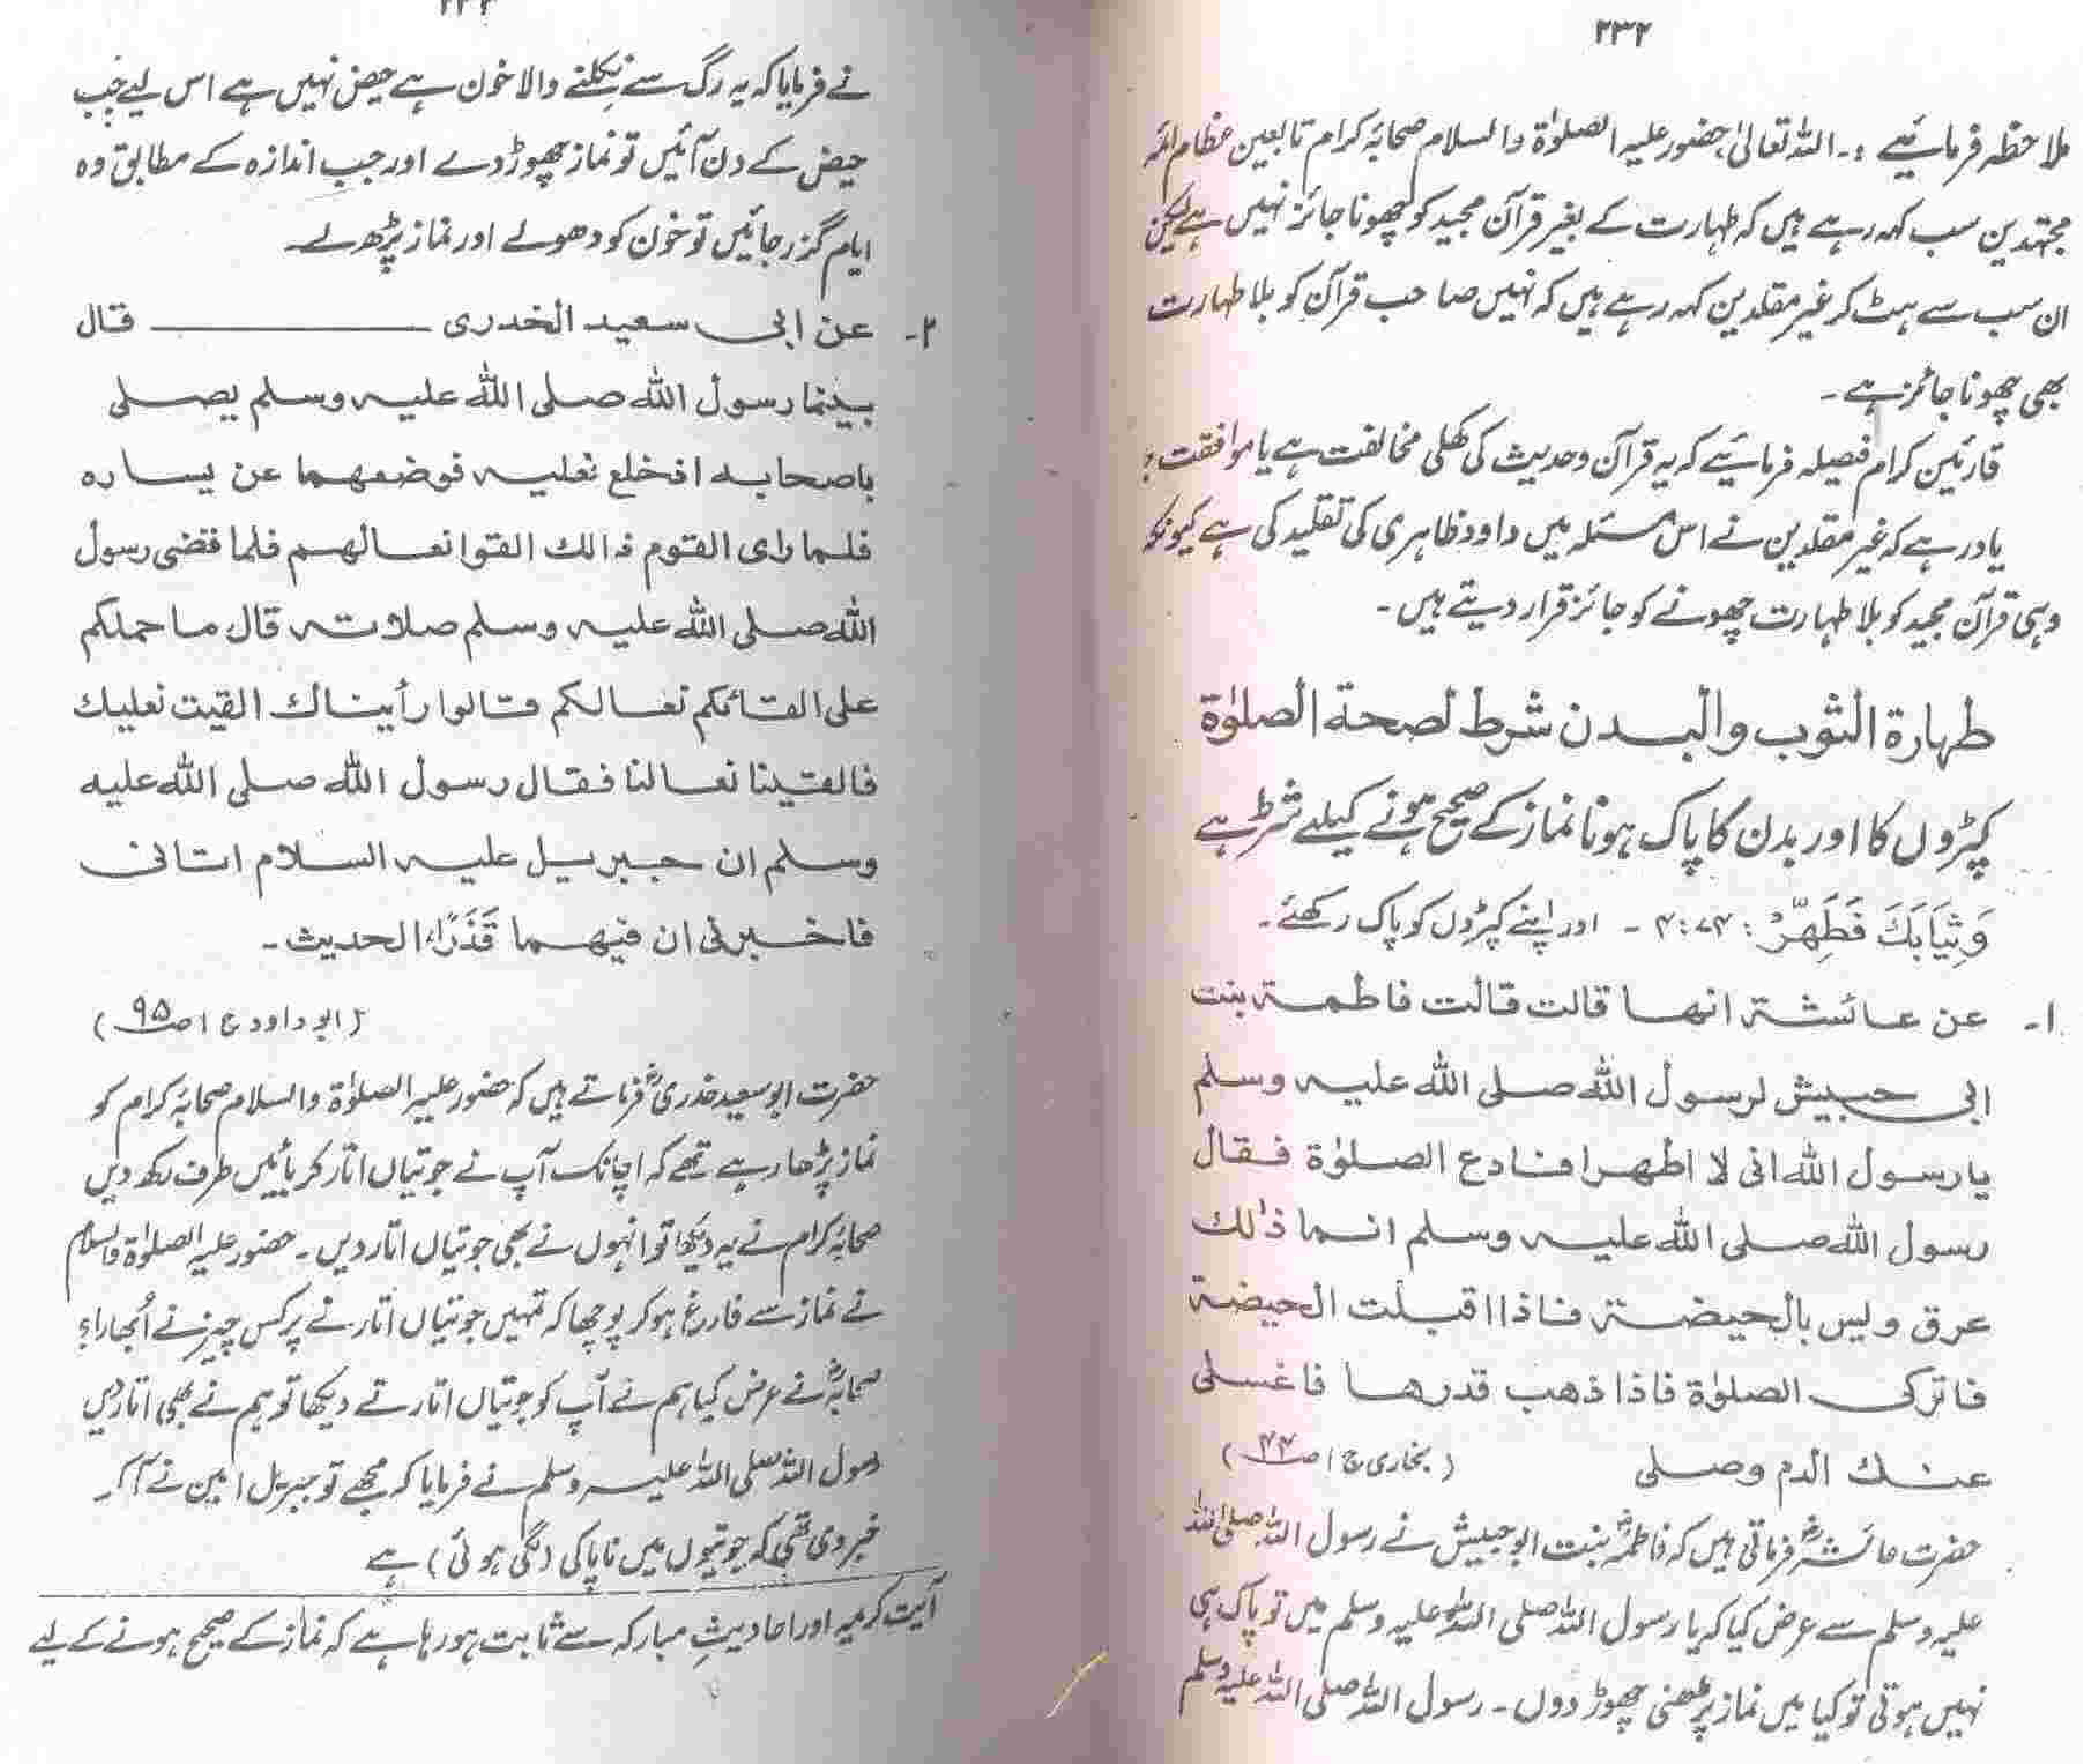 ۲۳۲
ملاحظہ فرمائیے :۔ اللہ تعالیٰ، حضور علیہ الصلوٰۃ والسلام صحابۂ کرام تابعین عظام ائمہ
مجتہدین سب کہہ رہے ہیں کہ طہارت کے بغیر قرآن مجید کو چھونا جائز نہیں ہے لیکن
ان سب سے ہٹ کر غیر مقلدین کہہ رہے ہیں کہ نہیں صاحب قرآن کو بلا طہارت
بھی چھونا جائز ہے۔
قارئین کرام فیصلہ فرمائیے کہ یہ قرآن وحدیث کی کھلی مخالفت ہے یا موافقت؟
یاد رہے کہ غیر مقلدین نے اس مسئلہ میں داود ظاہری کی تقلید کی ہے کیونکہ
وہی قرآن مجید کو بلا طہارت چھونے کو جائز قرار دیتے ہیں۔
طہارة الثوب والبدن شرط لصحة الصلوٰة
کپڑوں کا اور بدن کا پاک ہونا نماز کے صحیح ہونے کیلئے شرط ہے
وَثِيَابَكَ فَطَهِّرْ : ۷۴ : ۴ ۔ اور اپنے کپڑوں کو پاک رکھئے۔
۱۔ عن عائشة انها قالت قالت فاطمة بنت
ابی حبیش لرسول الله صلی الله علیه وسلم
یا رسول الله انی لا اطهر افنادع الصلوٰة فقال
رسول الله صلی الله علیه وسلم انما ذٰلك
عرق ولیس بالحیضة فاذا اقبلت الحیضة
فاترکی الصلوٰة فاذا ذهب قدرها فاغسلی
عنك الدم وصلی (بخاری ج ۱ ص ۴۴)
حضرت عائشہؓ فرماتی ہیں کہ فاطمہؓ بنت ابوحبیش نے رسول اللہ صلی اللہ
علیہ وسلم سے عرض کیا کہ یا رسول اللہ صلی اللہ علیہ وسلم میں تو پاک ہی
نہیں ہوتی تو کیا میں نماز پڑھنی چھوڑ دوں۔ رسول اللہ صلی اللہ علیہ وسلم
۲۳۳
نے فرمایا کہ یہ رگ سے نکلنے والا خون ہے حیض نہیں ہے اس لیے جب
حیض کے دن آئیں تو نماز چھوڑ دے اور جب اندازہ کے مطابق وہ
ایام گزر جائیں تو خون کو دھولے اور نماز پڑھ لے۔
۲۔ عن ابی سعید الخدری ــــــــ قال
بینما رسول الله صلی الله علیه وسلم یصلی
باصحابه اذخلع نعلیه فوضعهما عن یساره
فلما رای القوم ذالك القوا نعالهم فلما قضی رسول
الله صلی الله علیه وسلم صلاته قال ما حملکم
علی القائکم نعالکم قالوا رأیناك القیت نعلیك
فالقینا نعالنا فقال رسول الله صلی الله علیه
وسلم ان جبریل علیه السلام اتانی
فاخبرنی ان فیهما قَذَرًا، الحدیث۔
(ابو داود ج ۱ ص ۹۵)
حضرت ابو سعید خدریؓ فرماتے ہیں کہ حضور علیہ الصلوٰۃ والسلام صحابۂ کرام کو
نماز پڑھا رہے تھے کہ اچانک آپ نے جوتیاں اتار کر بائیں طرف رکھ دیں
صحابۂ کرام نے یہ دیکھا تو انہوں نے بھی جوتیاں اتار دیں۔ حضور علیہ الصلوٰۃ والسلام
نے نماز سے فارغ ہو کر پوچھا کہ تمہیں جوتیاں اتارنے پر کس چیز نے اُبھارا؟
صحابہؓ نے عرض کیا ہم نے آپ کو جوتیاں اتارتے دیکھا تو ہم نے بھی اتار دیں
رسول اللہ صلی اللہ علیہ وسلم نے فرمایا کہ مجھے تو جبریل امین نے آکر
خبر دی تھی کہ جوتیوں میں ناپاکی (لگی ہوئی) ہے
آیت کریمہ اور احادیثِ مبارکہ سے ثابت ہو رہا ہے کہ نماز کے صحیح ہونے کے لیے